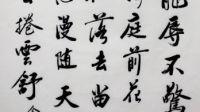 寵辱不驚
庭前花
落去留
漫随天
捲雲舒